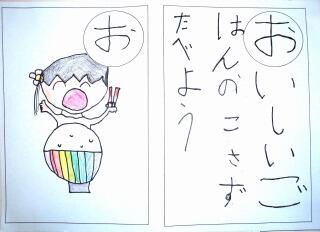 お
おいしいご
はんのこさず
たべよう